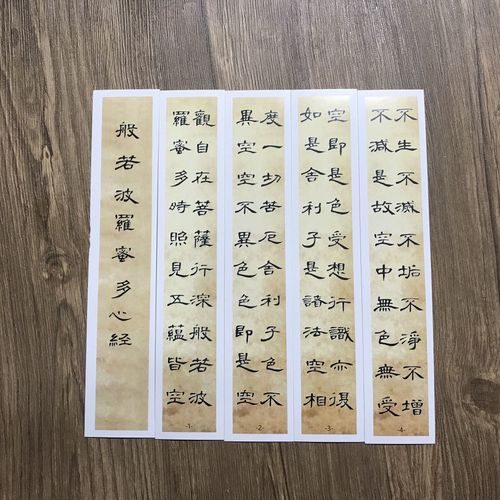 般若波羅蜜多心経
觀自在菩薩行深般若波
羅蜜多時照見五蘊皆空
-1-
度一切苦厄舍利子色不
異空空不異色色即是空
-2-
空即是色受想行識亦復
如是舍利子是諸法空相
-3-
不生不滅不垢不淨不增
不減是故空中無色無受
-4-